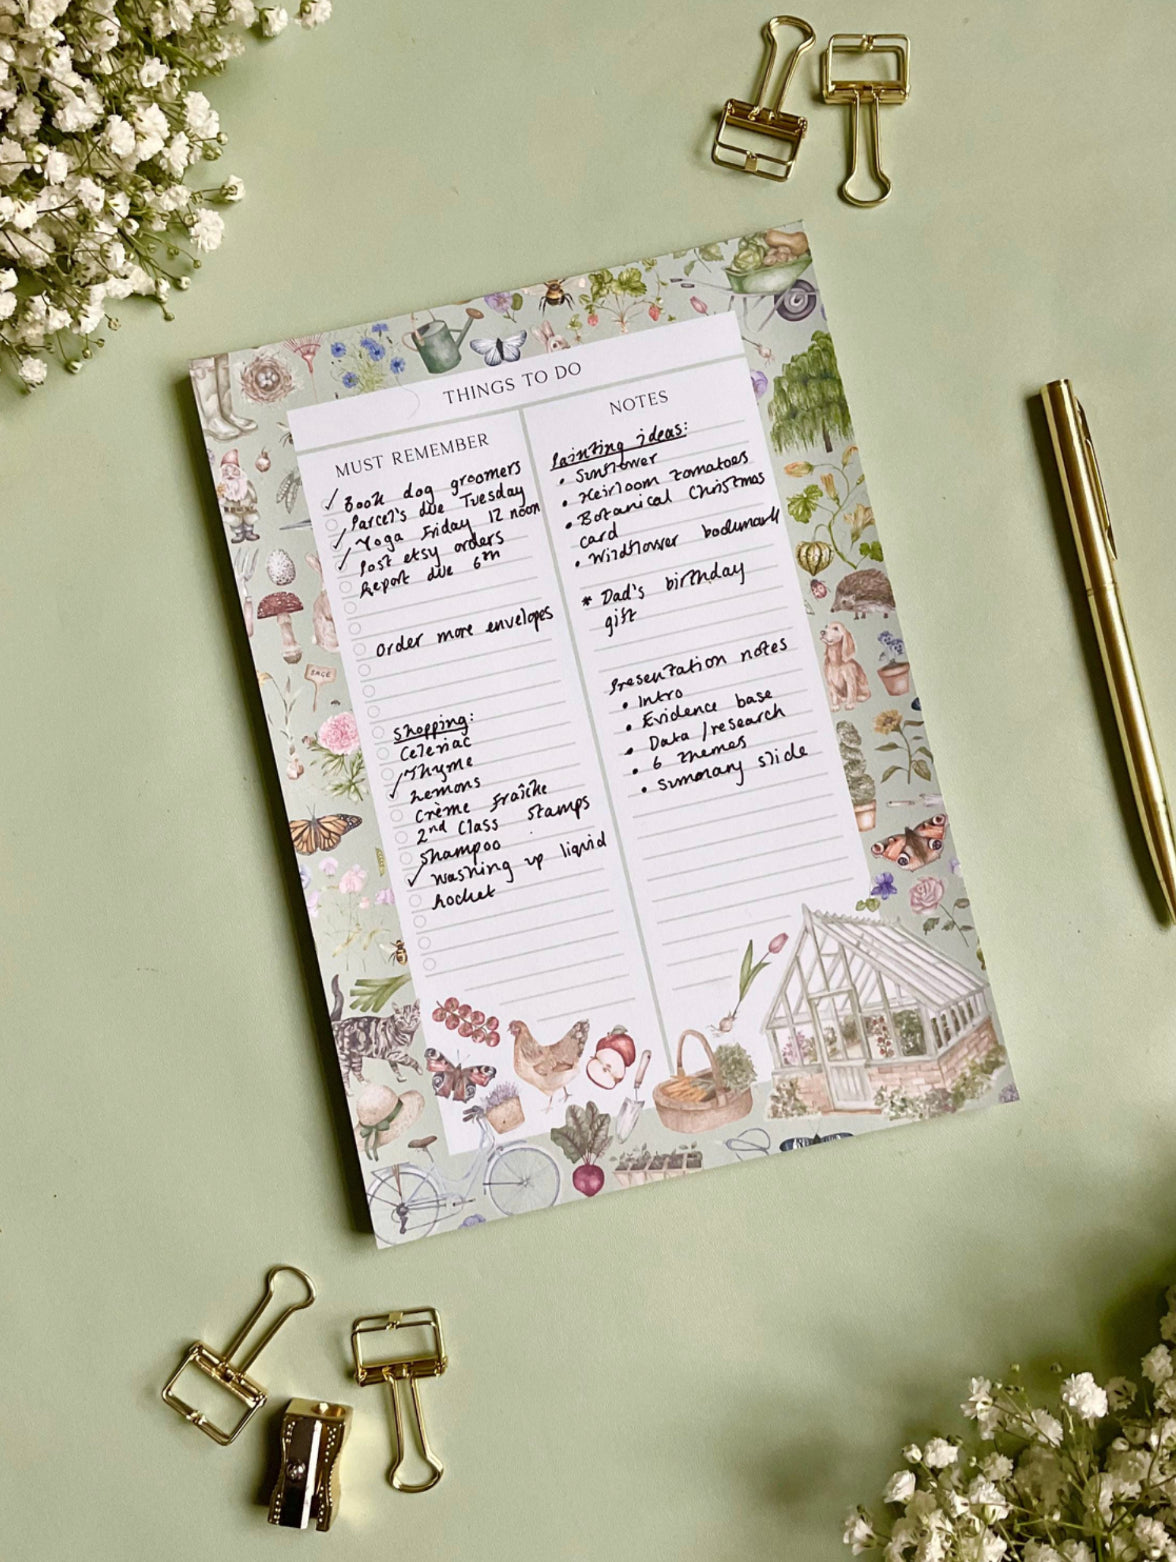 THINGS TO DO
MUST REMEMBER
Book dog groomers
Parcel's due Tuesday
Yoga Friday 12 noon
Post etsy orders
Report due 6th
Order more envelopes
Shopping:
Celeriac
Thyme
Lemons
Crème fraîche
2nd Class Stamps
Shampoo
Washing up liquid
Rocket
NOTES
Painting ideas:
• Sunflower
• Heirloom tomatoes
• Botanical Christmas
card
• Wildflower bookmark
* Dad's birthday
gift
Presentation notes
• Intro
• Evidence base
• Data/research
• 6 themes
• Summary slide
SAGE